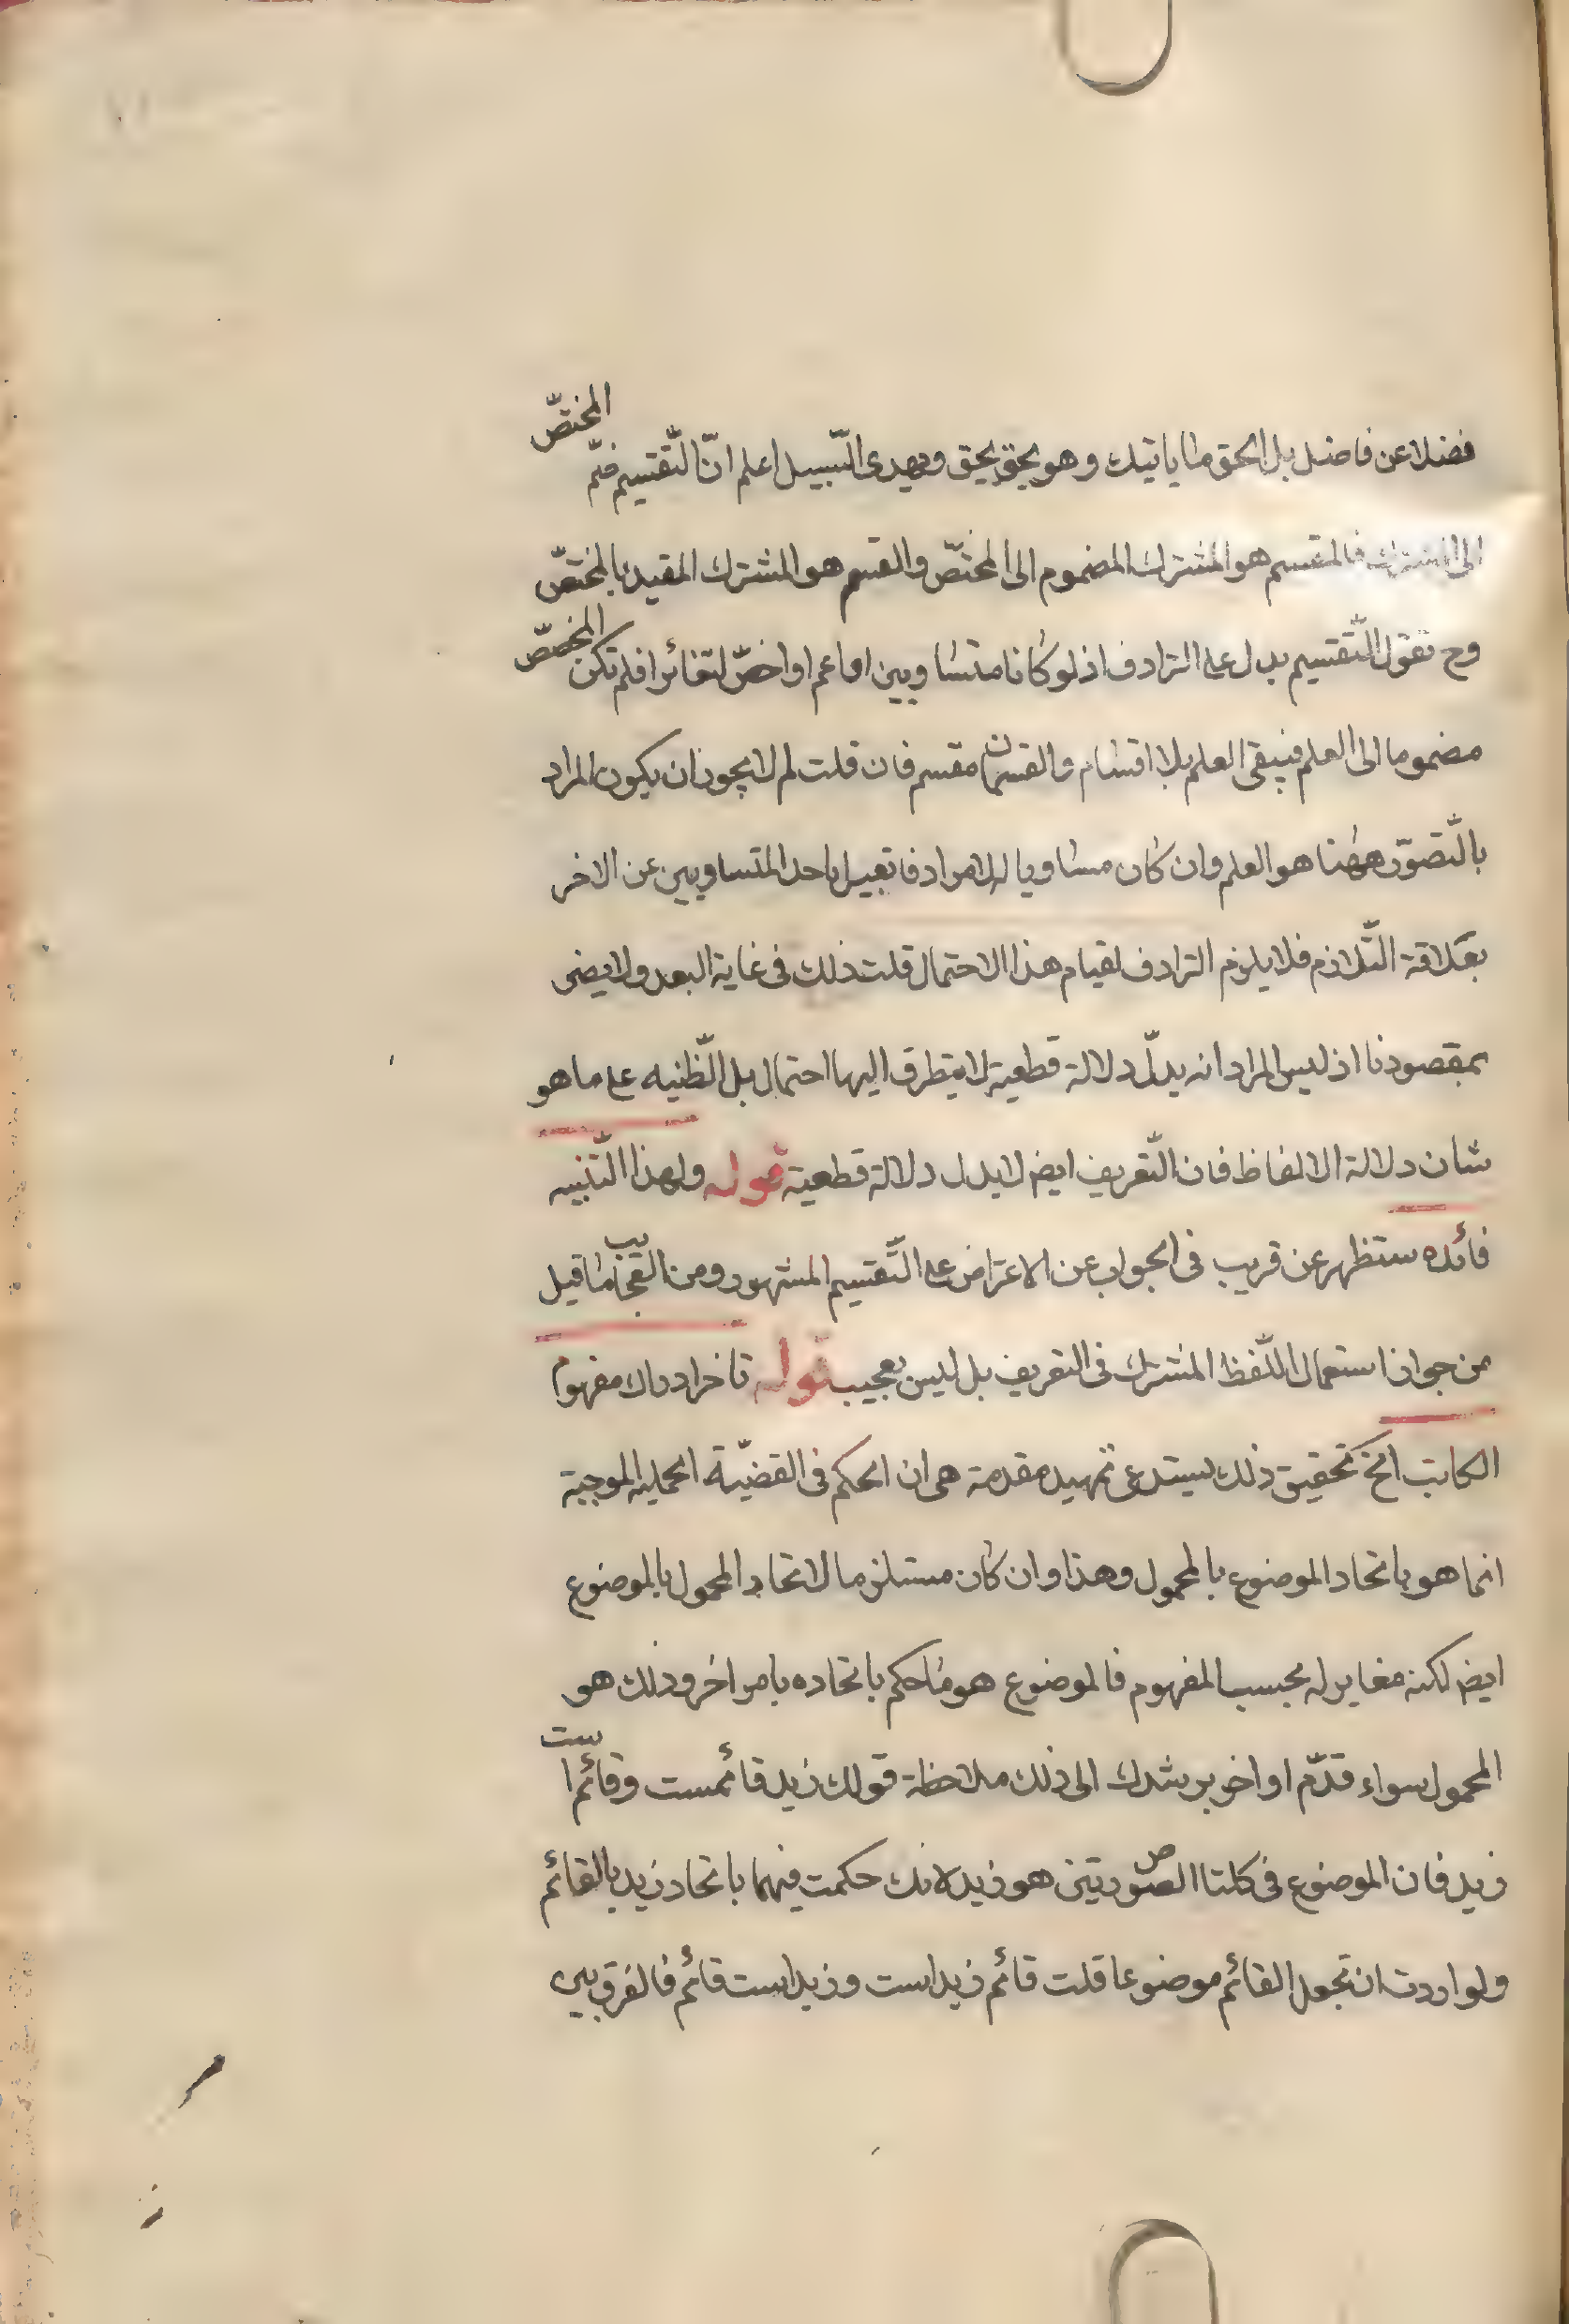 فضلا عن فاضل بل الحق ما ياتيك وهو بحق يحق ويهدى السّبيل اعلم انّ التّقسيم ضمّ المختصّ
الى المشترك فالمقسم هو المشترك المضموم الى المختصّ والقسم هو المشترك المقيد بالمختصّ
وح نقول التّقسيم يدل على الترادف اذ لو كانا متساويين او اعم او اخصّ لتغائرا فلم تكن المخصّص
مضموما الى العلم فيبقى العلم بلا اقسام والقسمان مقسم فان قلت لم لا يجوز ان يكون المراد
بالتّصوّر ههنا هو العلم وان كان مساويا له لا مرادفا تعبيرا باحد المتساويين عن الاخر
بعلاقة التّلازم فلا يلزم الترادف لقيام هذا الاحتمال قلت ذلك فى غاية البعد ولا يضر
بمقصودنا اذ ليس المراد انه يدلّ دلالة قطعية لا يتطرق اليها احتمال بل الظّنيه على ما هو
شان دلالة الالفاظ فان التّعريف ايض لا يدل دلالة قطعية قوله ولهذا التّنبيه
فائده ستظهر عن قريب فى الجواب عن الاعتراض على التّقسيم المشهور ومن العجايب ما قيل
من جواز استعمال اللّفظ المشترك فى التعريف بل ليس بعجيب قوله تاخر ادراك مفهوم
الكاتب الخ تحقيق ذلك يستدعى تمهيد مقدمة هى ان الحكم فى القضيّة الحمليه الموجبة
انما هو باتحاد الموضوع بالمحمول وهذا وان كان مستلزما لاتحاد المحمول بالموضوع
ايض لكنه مغاير له بحسب المفهوم فالموضوع هو ما حكم باتحاده بامر اخر وذلك هو
المحمول سواء قدّم او اخر يرشدك الى ذلك ملاحظة قولك زيد قائمست وقائم است
زيد فان الموضوع فى كلتا الصورتين هو زيد لانك حكمت فيهما باتحاد زيد بالقائم
ولو اردت ان تجعل القائم موضوعا قلت قائم زيد است وزيد است قائم فالفرق بين